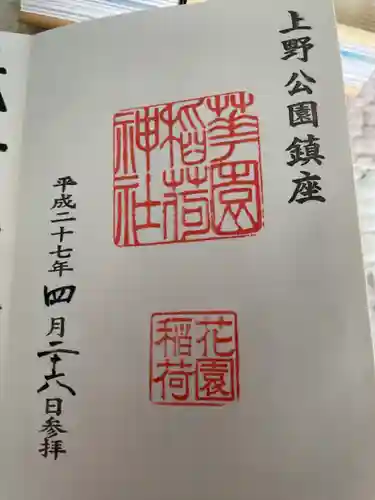 上野公園鎮座
華園
稲荷
神社
花園
稲荷
平成二十七年四月二十八日参拝